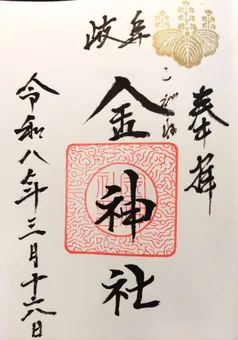 奉拝
岐阜
こがね
金神社
令和八年三月十六日